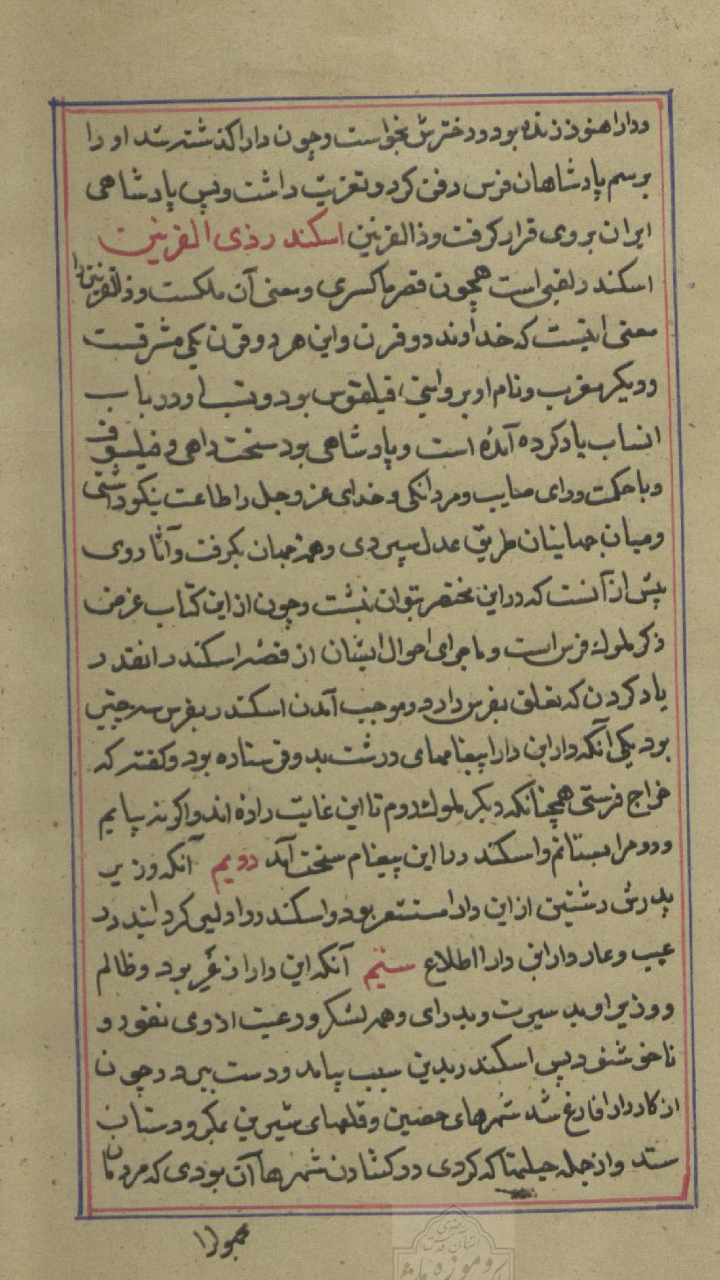 ودارا هنوز زنده بود ودخترش بخواست وچون دارا کذشته شد او را
برسم پادشاهان فرس دفن کرد وتعزیت داشت وپس پادشاهی
ایران بروی قرار کرفت وذالقرنین اسکندر ذی القرنین
اسکندر لقبی است همچون قیصر وکسری ومعنی آن ملکست وذالقرنین را
معنی اینست که خداوند دو قرن واین هر دو قرن یکی مشرقست
ودیکر مغرب ونام او بروایتی فیلقوس بود ونسب او در باب
انساب یاد کرده آمده است وپادشاهی بود سخت داهی وفیلسوف
وباحکمت ورای صایب ومردانکی وخدای عز وجل را طاعت نیکو داشتی
ومیان جهانیان طریق عدل سپردی وهمه جهان بکرفت وآثار وی
بیش از آنست که در این مختصر توان نبشت وچون از این کتاب غرض
ذکر ملوک فرس است وماجرای احوال ایشان از قصه اسکندر انقدر
یاد کردن که تعلق بفرس دارد وموجب آمدن اسکندر بفرس سه چیز
بود یکی آنکه دارا ابن دارا پیغامهای درشت بدو فرستاده بود وکفته که
خراج فرستی همچنانکه دیکر ملوک روم تا این غایت داده اند واکر نه بیایم
وروم را بستانم واسکندر را این پیغام سخت آمد دویم آنکه وزیر
پدرش رشتین از این دارا مستشعر بود واسکندر را دلیر کردانید در
عیب وعار دارا ابن دارا اطلاع سیّم آنکه این دارا زعر بود وظالم
ووزیر او بد سیرت وبدرای وهمه لشکر ورعیت از وی نفور و
ناخوشنود پس اسکندر بدین سبب بیامد ودست ببرد وچون
از کار دارا فارغ شد شهرهای حصین وقلعهای بمکر ودستان
ستد واز جمله حیلتها که کردی در کشادن شهرها آن بودی که مردمان